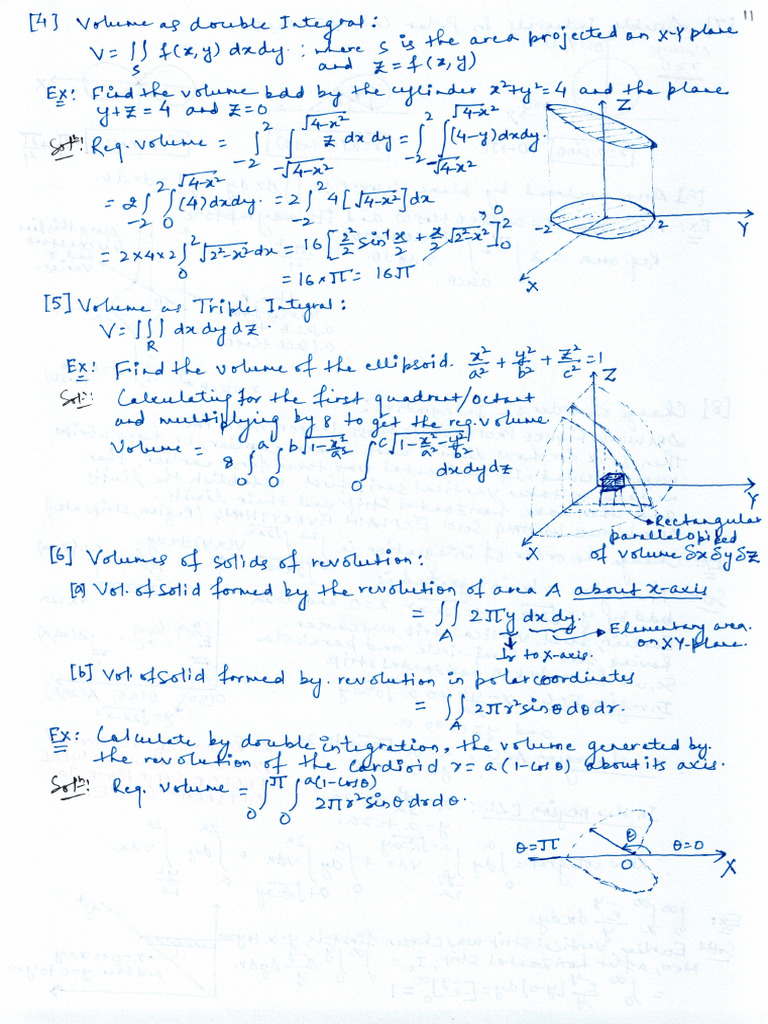 11
[4] Volume as double Integral:
V = ∬_S f(x,y) dxdy : where S is the area projected on X-Y plane
and z = f(x,y)
Ex: Find the volume bdd by the cylinder x²+y²=4 and the plane
y+z=4 and z=0
Solⁿ: Req. volume = ∫_{-2}^{2} ∫_{-√(4-x²)}^{√(4-x²)} z dxdy = ∫_{-2}^{2} ∫_{-√(4-x²)}^{√(4-x²)} (4-y)dxdy.
= 2∫_{-2}^{2} ∫_{0}^{√(4-x²)} (4)dxdy. = 2∫_{-2}^{2} 4[√(4-x²)]dx
= 2×4×2∫_{0}^{2} √(2²-x²)dx = 16[2²/2 sin⁻¹ x/2 + x/2 √(2²-x²)]_{0}^{2} → 0
= 16×π = 16π
Z
-2
2
Y
X
[5] Volume as Triple Integral:
V = ∭_R dxdydz.
Ex: Find the volume of the ellipsoid. x²/a² + y²/b² + z²/c² = 1
Solⁿ: Calculating for the first quadrent/octant
and multiplying by 8 to get the req. volume
Volume = 8∫_{0}^{a} ∫_{0}^{b√(1-x²/a²)} ∫_{0}^{c√(1-x²/a²-y²/b²)} dxdydz
Z
Y
X
Rectangular
parallelopiped
of volume δxδyδz
[6] Volumes of solids of revolution:
[a] Vol. of solid formed by the revolution of area A about x-axis
= ∬_A 2πy dxdy.
Elementary area
on XY-plane.
⊥r to X-axis.
[b] Vol. of Solid formed by revolution in polar coordinates
= ∬_A 2πr²sinθdθdr.
Ex: Calculate by double integration, the volume generated by.
the revolution of the cardioid r=a(1-cosθ) about its axis.
Solⁿ: Req. Volume = ∫_{0}^{π} ∫_{0}^{a(1-cosθ)} 2πr²sinθdrdθ.
θ=π
θ
θ=0
O
X